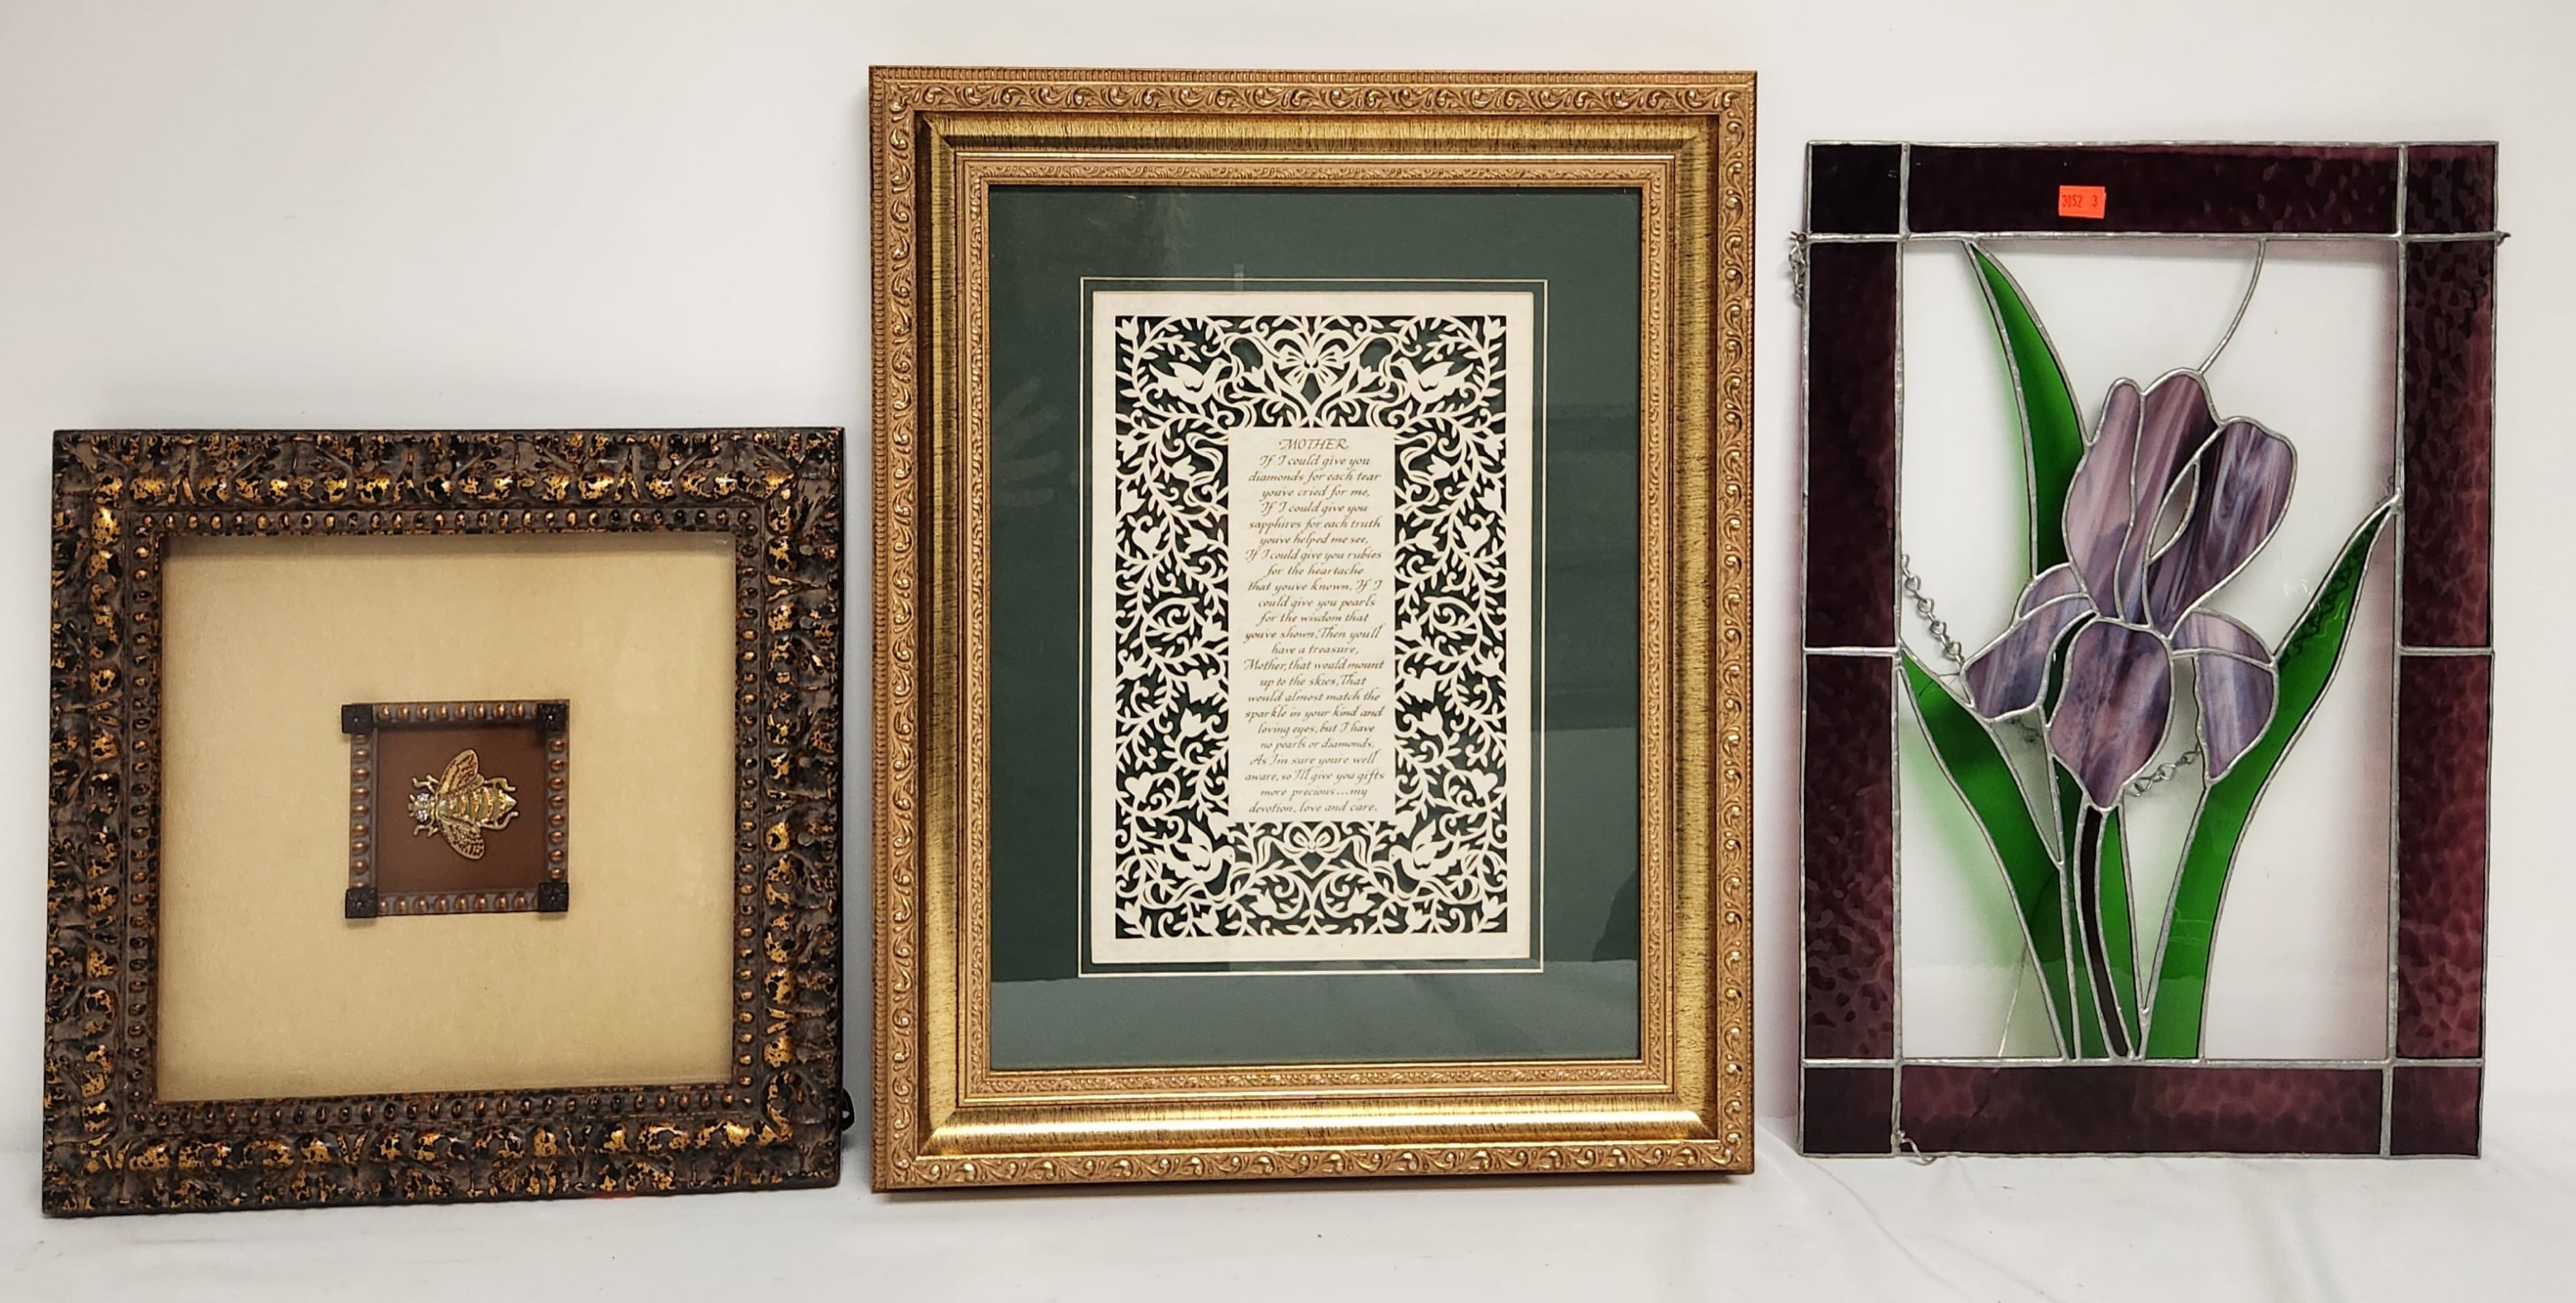 MOTHER
If I could give you
diamonds for each tear
you've cried for me,
If I could give you
sapphires for each truth
you've helped me see,
If I could give you rubies
for the heartache
that you've known, If I
could give you pearls
for the wisdom that
you've shown, Then you'll
have a treasure,
Mother, that would mount
up to the skies, That
would almost match the
sparkle in your kind and
loving eyes, but I have
no pearls or diamonds,
As I'm sure you're well
aware, so I'll give you gifts
more precious...my
devotion, love and care.
3052 3